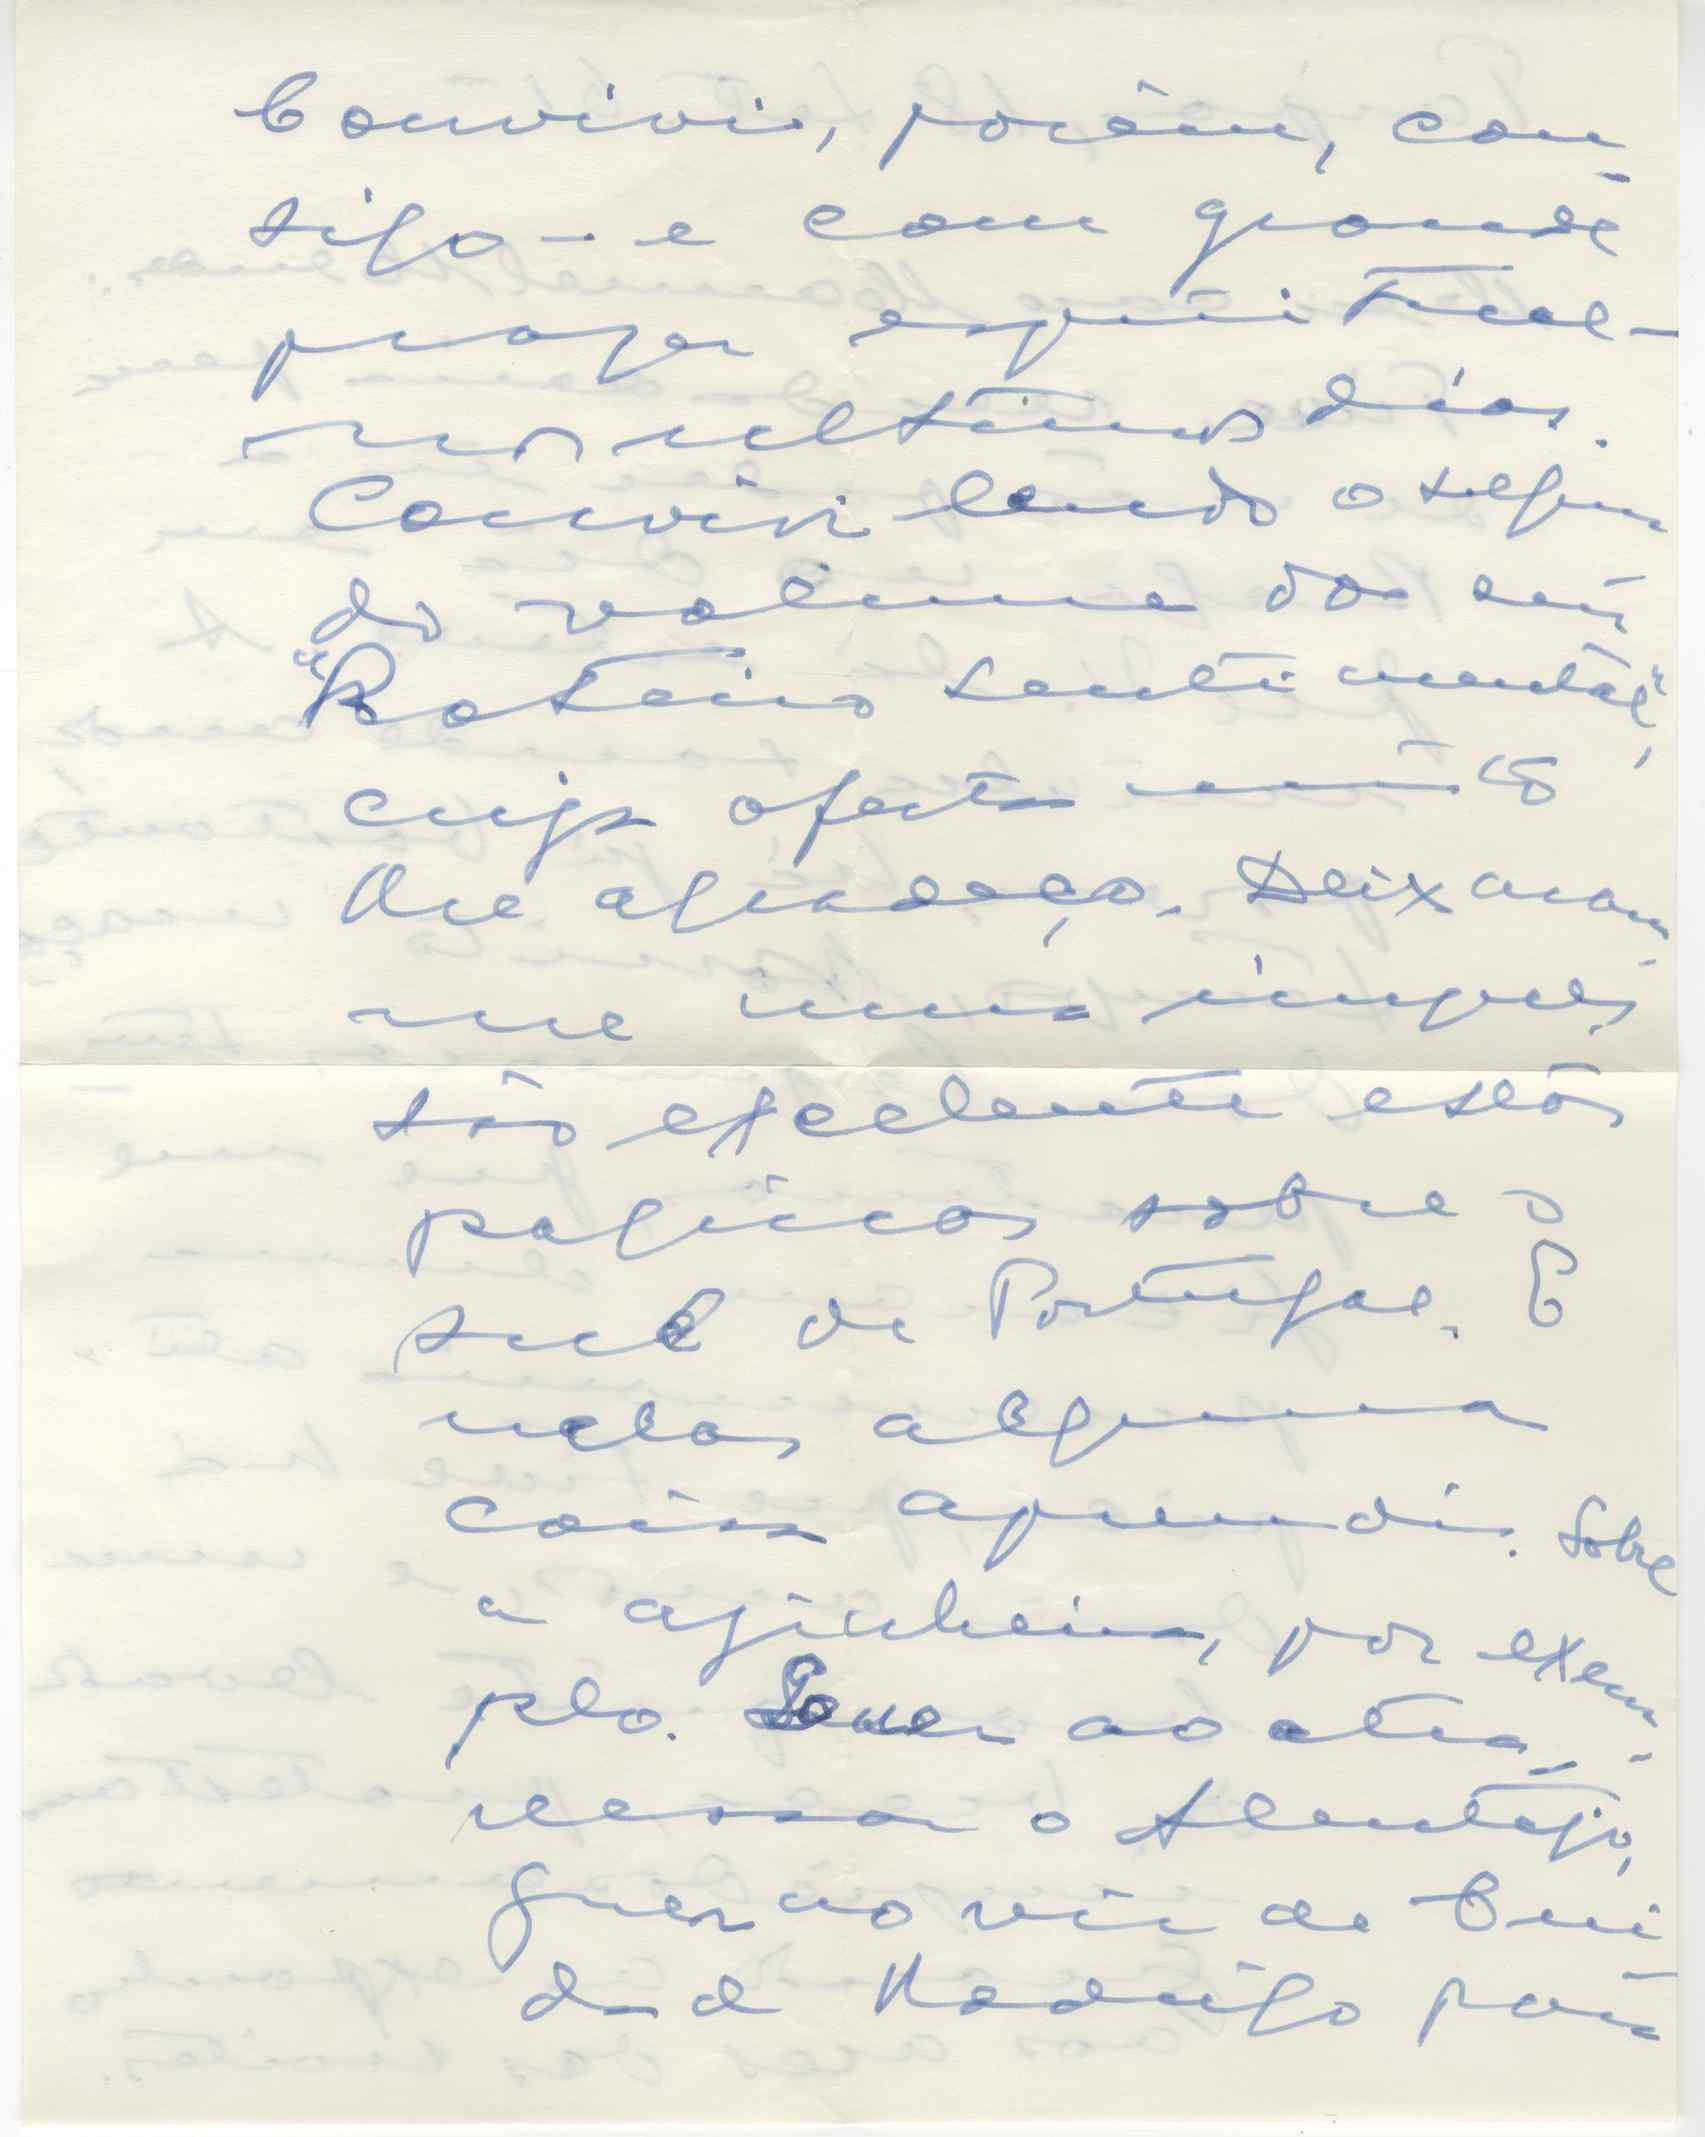 Convivi, porém, con-
sigo - e com grande
prazer espiritual -
nos ultimos dias.
Convivi lendo o segun
do volume do seu
"Roteiro sentimental",
cuja oferta muito
lhe agradeço. Deixaram-
me uma impres-
são excelente essas
paginas sobre o
sul de Portugal. E
nelas alguma
coisa aprendi. Sobre
a azinheira, por exem-
plo. Quer ao atra-
vessar o Alentejo,
quer ao vir de Ciu
dad Rodrigo para